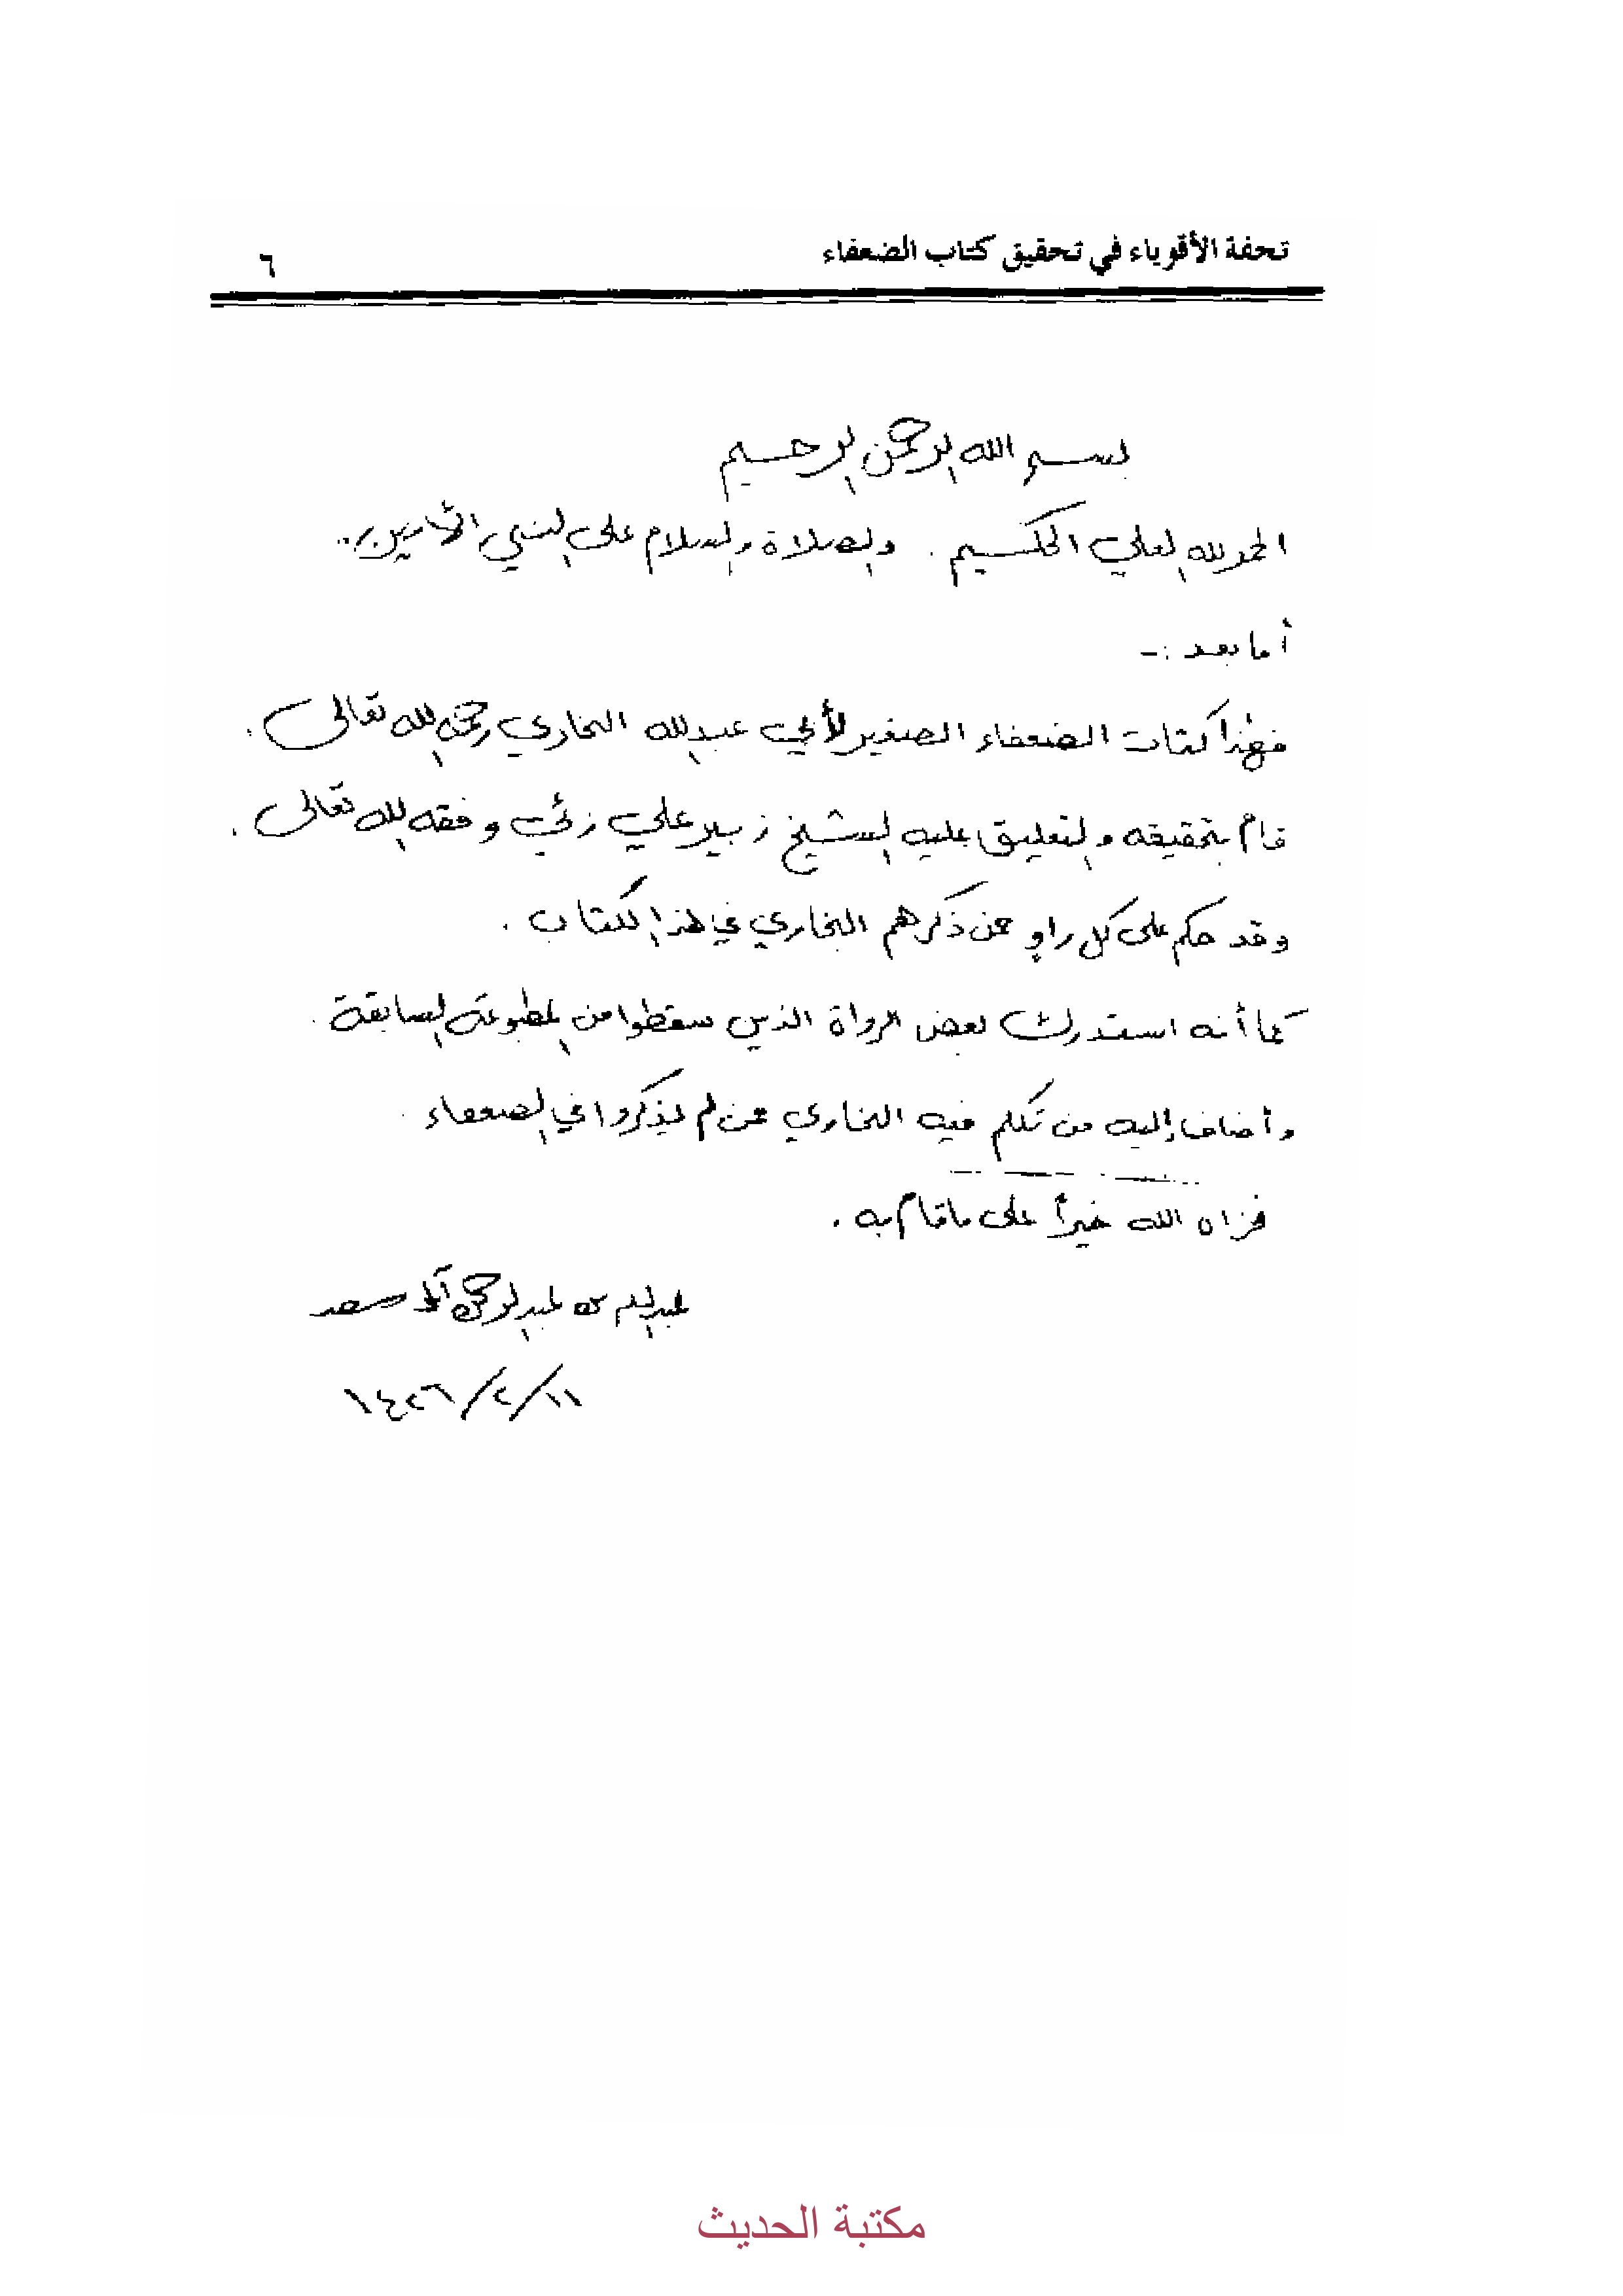 تحفة الأقوياء في تحقيق كتاب الضعفاء
٦
بسم الله الرحمن الرحيم
الحمد لله العلي الحكيم . والصلاة والسلام على النبي الأمين ..
أما بعد :-
فهذا كتاب الضعفاء الصغير لأبي عبد الله البخاري رحمه الله تعالى .
قام بتحقيقه والتعليق عليه الشيخ زبير علي زئي وفقه الله تعالى .
وقد حكم على كل راوٍ ممن ذكرهم البخاري في هذا الكتاب .
كما أنه استدرك بعض الرواة الذين سقطوا من المطبوعة السابقة .
وأضاف إليه من تكلم فيه البخاري ممن لم يذكروا في الضعفاء .
فجزاه الله خيراً على ما قام به .
عبد الله بن عبد الرحمن آل سعد
١١/٢/١٤٢٦
مكتبة الحديث